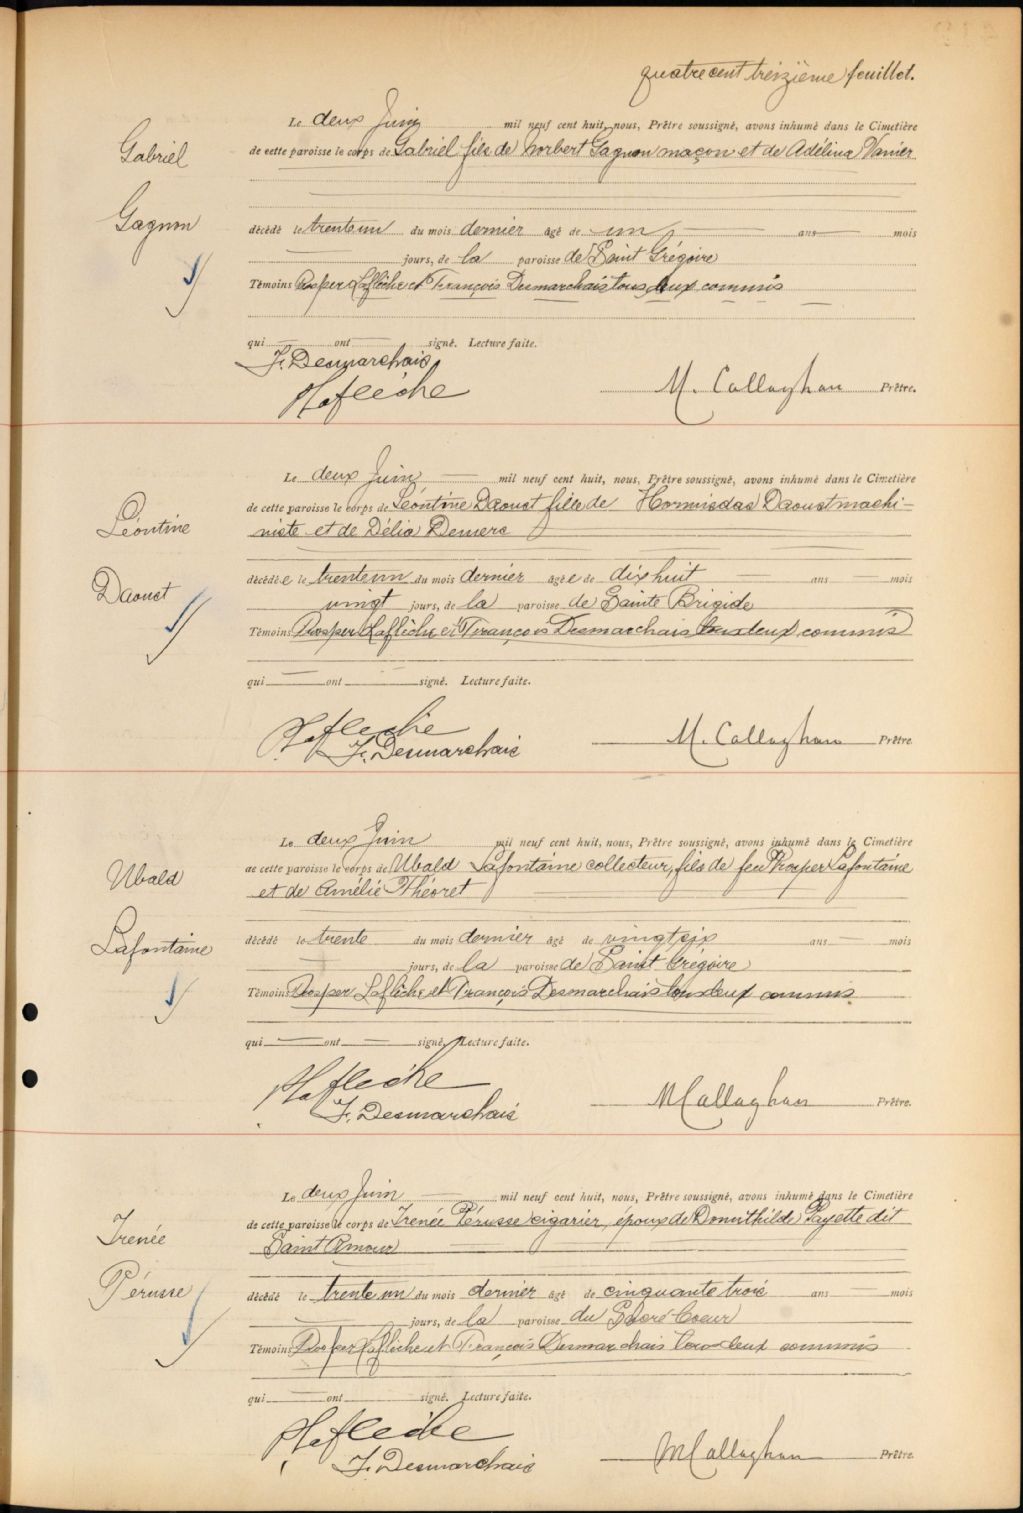 quatre cent treizième feuillet.
Le deux Juin mil neuf cent huit, nous, Prêtre soussigné, avons inhumé dans le Cimetière
Gabriel
de cette paroisse le corps de Gabriel fils de Norbert Gagnon maçon et de Adélina Vanier
Gagnon
décédé le trente un du mois dernier âgé de un ans mois
jours, de la paroisse de Saint Grégoire
Témoins Prosper Laflèche et François Desmarchais tous deux commis
qui ont signé. Lecture faite.
F. Desmarchais
P Laflèche
M. Callaghan Prêtre.
Le deux Juin mil neuf cent huit, nous, Prêtre soussigné, avons inhumé dans le Cimetière
de cette paroisse le corps de Léontine Daoust fille de Hormisdas Daoust machi-
Léontine
niste et de Délia Demers
Daoust
décédée le trente un du mois dernier âgée de dix huit ans mois
vingt jours, de la paroisse de Sainte Brigide
Témoins Prosper Laflèche et François Desmarchais tous deux commis
qui ont signé. Lecture faite.
P Laflèche
F. Desmarchais
M. Callaghan Prêtre
Le deux Juin mil neuf cent huit, nous, Prêtre soussigné, avons inhumé dans le Cimetière
de cette paroisse le corps de Ubald Lafontaine collecteur, fils de feu Prosper Lafontaine
Ubald
et de Amélie Théoret
Lafontaine
décédé le trente du mois dernier âgé de vingt six ans mois
jours, de la paroisse de Saint Grégoire
Témoins Prosper Laflèche et François Desmarchais tous deux commis.
qui ont signé. Lecture faite.
P Laflèche
F. Desmarchais
M Callaghan Prêtre.
Le deux Juin mil neuf cent huit, nous, Prêtre soussigné, avons inhumé dans le Cimetière
de cette paroisse le corps de Irenée Pérusse cigarier, époux de Domithilde Payette dit
Irénée
Saint Amour
Pérusse
décédé le trente un du mois dernier âgé de cinquante trois ans mois
jours, de la paroisse du Sacré Coeur
Témoins Prosper Laflèche et François Desmarchais tous deux commis
qui ont signé. Lecture faite.
P Laflèche
F. Desmarchais
M Callaghan Prêtre.